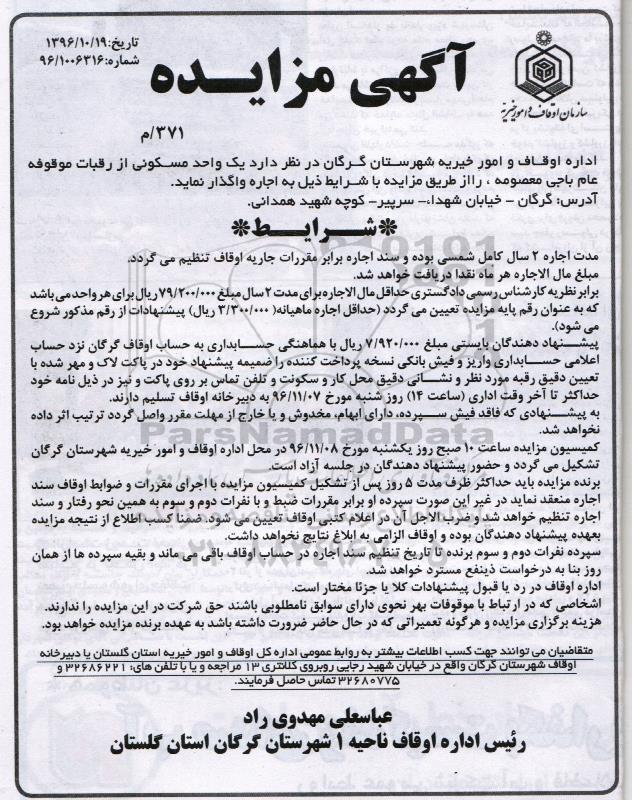 تاریخ: ۱۳۹۶/۱۰/۱۹
شماره: ۹۶/۱۰۰۶۳۱۶
آگهی مزایده
سازمان اوقاف و امور خیریه
۳۷۱/م
اداره اوقاف و امور خیریه شهرستان گرگان در نظر دارد یک واحد مسکونی از رقبات موقوفه
عام باجی معصومه ، رااز طریق مزایده با شرایط ذیل به اجاره واگذار نماید.
آدرس: گرگان - خیابان شهداء- سرپیر- کوچه شهید همدانی.
*شرایط*
مدت اجاره ۲ سال کامل شمسی بوده و سند اجاره برابر مقررات جاریه اوقاف تنظیم می گردد.
مبلغ مال الاجاره هر ماه نقدا دریافت خواهد شد.
برابر نظریه کارشناس رسمی دادگستری حداقل مال الاجاره برای مدت ۲ سال مبلغ ۷۹/۲۰۰/۰۰۰ ریال برای هر واحد می باشد
که به عنوان رقم پایه مزایده تعیین می گردد (حداقل اجاره ماهیانه( ۳/۳۰۰/۰۰۰ ریال) پیشنهادات از رقم مذکور شروع
می شود).
پیشنهاد دهندگان بایستی مبلغ ۷/۹۲۰/۰۰۰ ریال با هماهنگی حسابداری به حساب اوقاف گرگان نزد حساب
اعلامی حسابداری واریز و فیش بانکی نسخه پرداخت کننده را ضمیمه پیشنهاد خود در پاکت لاک و مهر شده با
تعیین دقیق رقبه مورد نظر و نشانی دقیق محل کار و سکونت و تلفن تماس بر روی پاکت و نیز در ذیل نامه خود
حداکثر تا آخر وقت اداری (ساعت ۱۴) روز شنبه مورخ ۹۶/۱۱/۰۷ به دبیرخانه اوقاف تسلیم دارند.
به پیشنهادی که فاقد فیش سپرده، دارای ابهام، مخدوش و یا خارج از مهلت مقرر واصل گردد ترتیب اثر داده
نخواهد شد.
کمیسیون مزایده ساعت ۱۰ صبح روز یکشنبه مورخ ۹۶/۱۱/۰۸ در محل اداره اوقاف و امور خیریه شهرستان گرگان
تشکیل می گردد و حضور پیشنهاد دهندگان در جلسه آزاد است.
برنده مزایده باید حداکثر ظرف مدت ۵ روز پس از تشکیل کمیسیون مزایده با اجرای مقررات و ضوابط اوقاف سند
اجاره منعقد نماید در غیر این صورت سپرده او برابر مقررات ضبط و با نفرات دوم و سوم به همین نحو رفتار و سند
اجاره تنظیم خواهد شد و ضرب الاجل آن در اعلام کتبی اوقاف تعیین می شود. ضمنا کسب اطلاع از نتیجه مزایده
بعهده پیشنهاد دهندگان بوده و اوقاف الزامی به ابلاغ نتایج نخواهد داشت.
سپرده نفرات دوم و سوم برنده تا تاریخ تنظیم سند اجاره در حساب اوقاف باقی می ماند و بقیه سپرده ها از همان
روز بنا به درخواست ذینفع مسترد خواهد شد.
اداره اوقاف در رد یا قبول پیشنهادات کلا یا جزئا مختار است.
اشخاصی که در ارتباط با موقوفات بهر نحوی دارای سوابق نامطلوبی باشند حق شرکت در این مزایده را ندارند.
هزینه برگزاری مزایده و هرگونه تعمیراتی که در حال حاضر ضرورت داشته باشد به عهده برنده مزایده خواهد بود.
متقاضیان می توانند جهت کسب اطلاعات بیشتر به روابط عمومی اداره کل اوقاف و امور خیریه استان گلستان یا دبیرخانه
اوقاف شهرستان گرگان واقع در خیابان شهید رجایی روبروی کلانتری ۱۳ مراجعه و یا با تلفن های: ۳۲۶۸۶۲۲۱ و
۳۲۶۸۰۷۷۵ تماس حاصل فرمایند.
عباسعلی مهدوی راد
رئیس اداره اوقاف ناحیه ۱ شهرستان گرگان استان گلستان
ParsNamadData